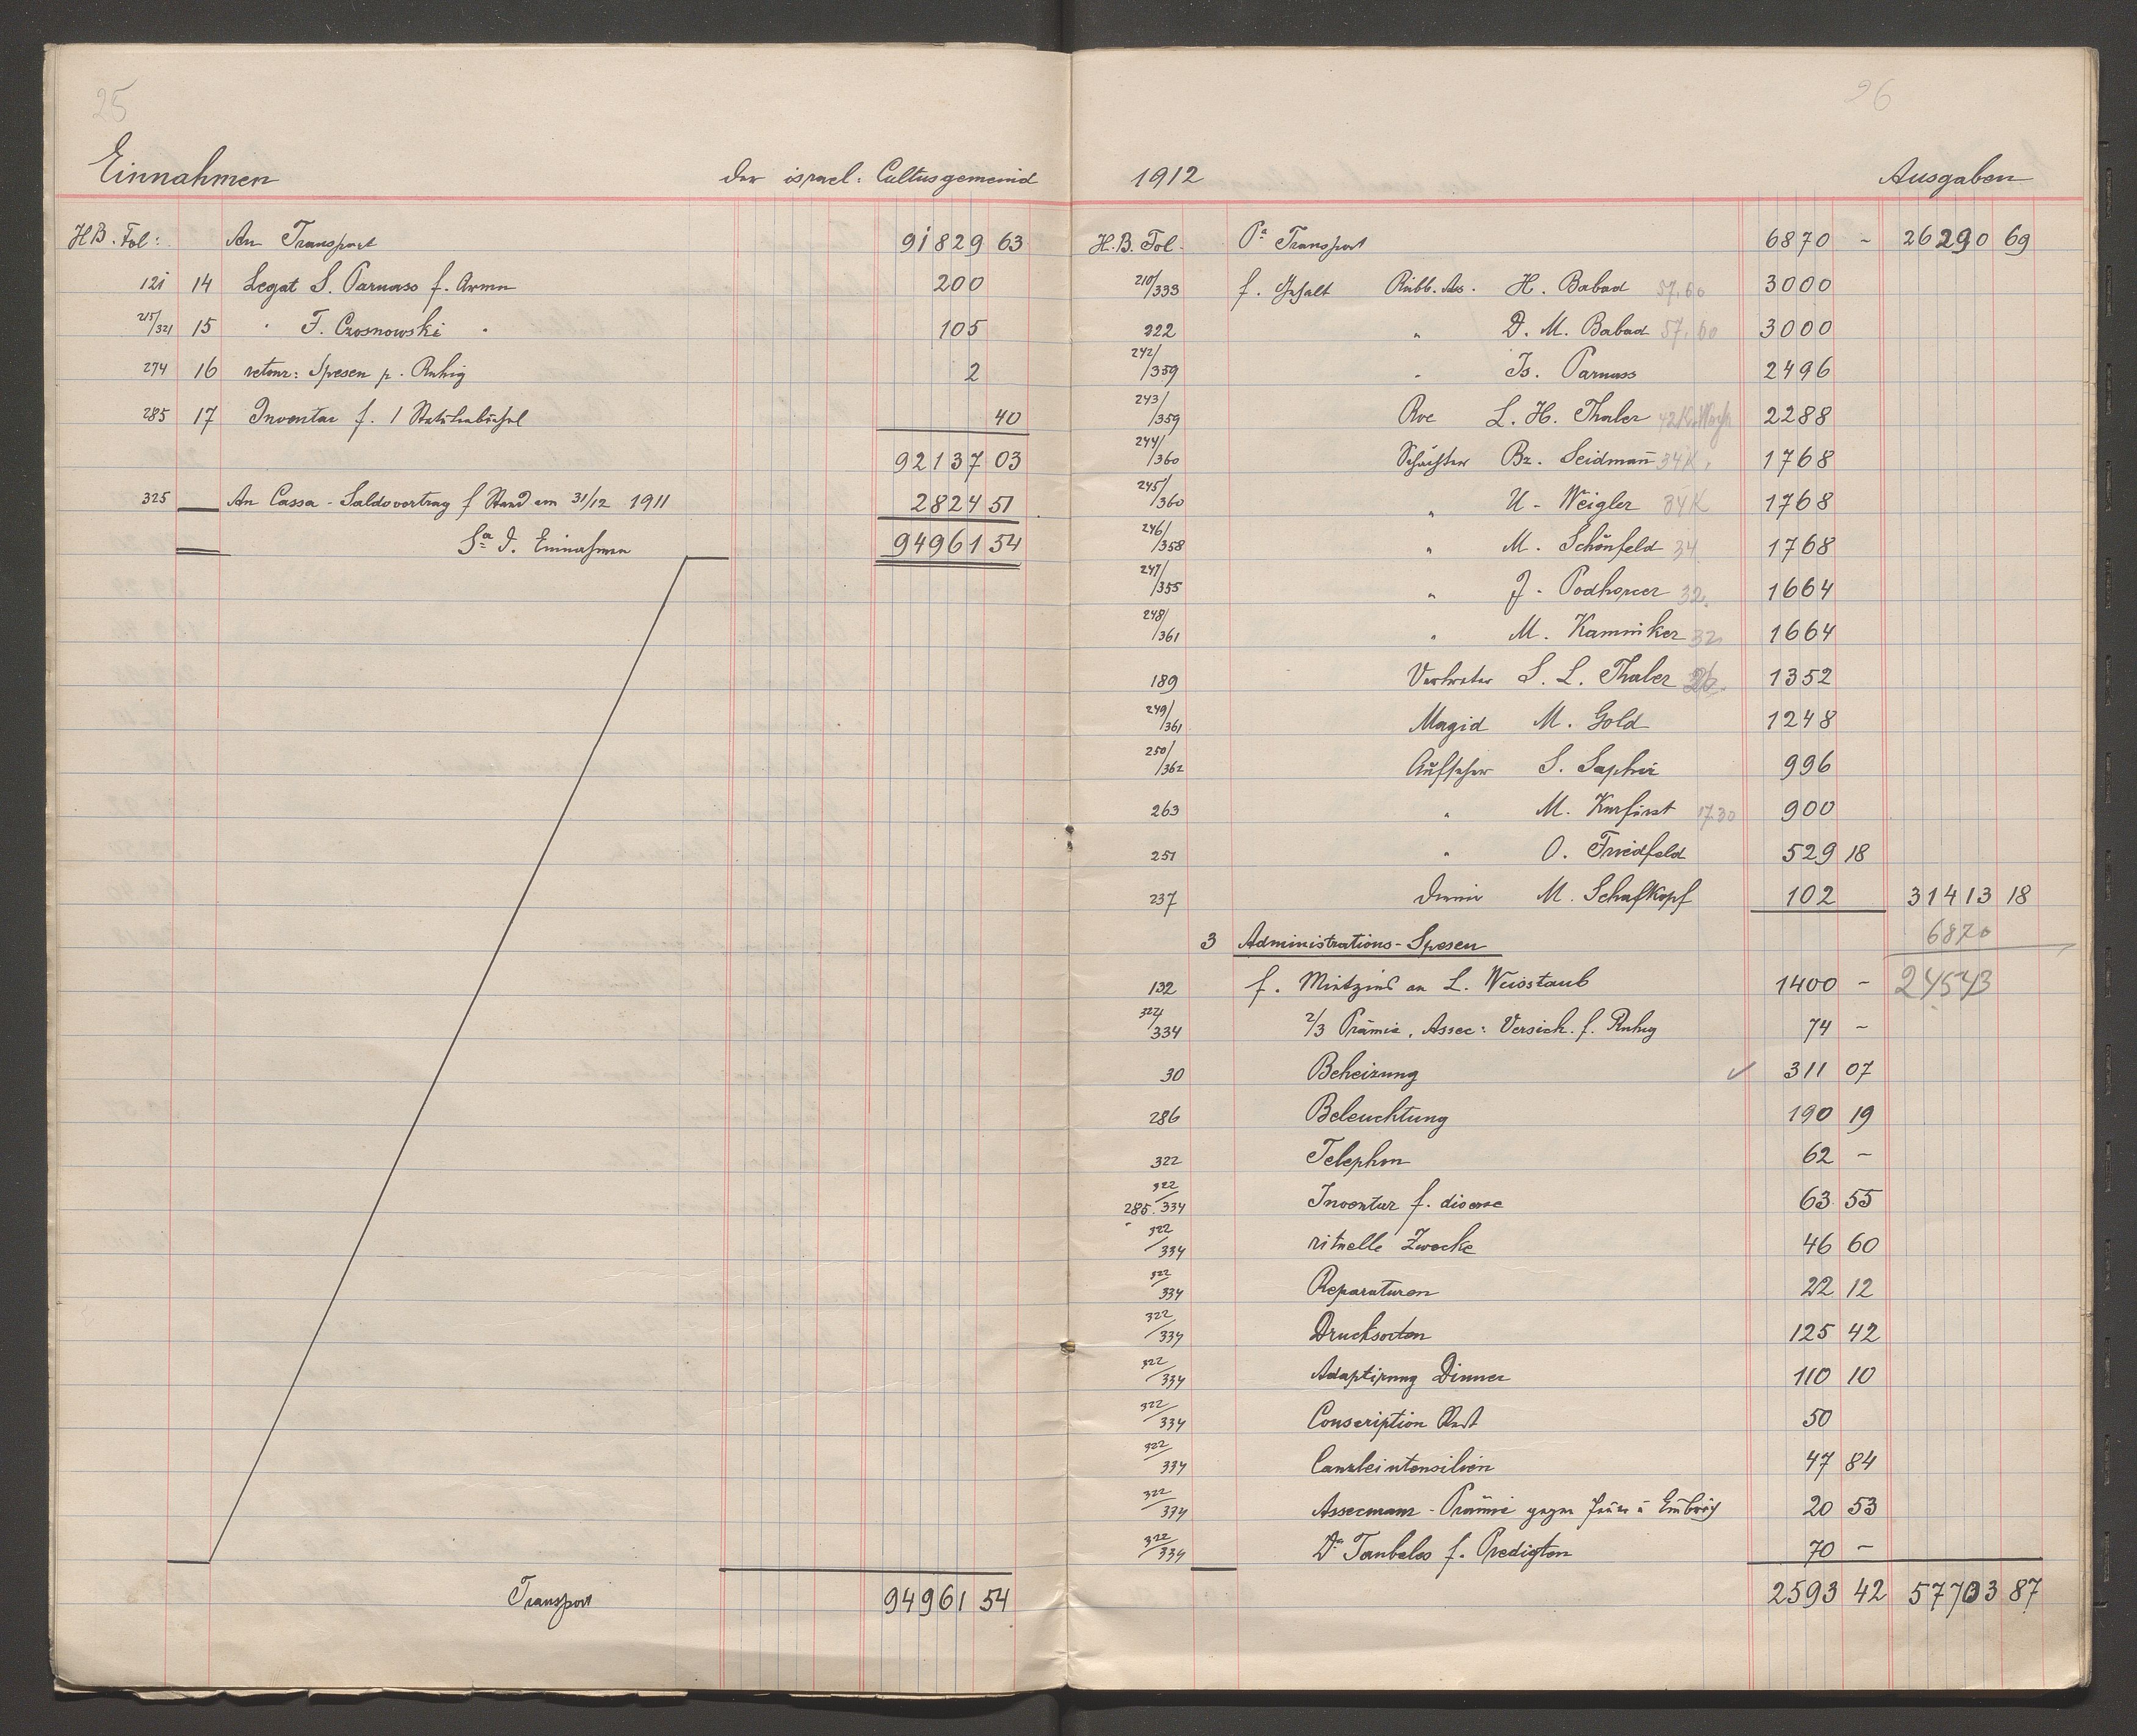 25
Einnahmen der israel: Cultusgemeind
H.B. Fol: An Transport 91829 63
121 14 Legat S. Parnass f. Armen 200
215/321 15 " F. Czosnowski " 105
274 16 retour: Spesen p. Ruhig 2
285 17 Inventar f. 1 40
92137 03
325 An Cassa-Saldovortrag f Stand am 31/12 1911 2824 51
Sa d. Einnahmen 94961 54
Transport 94961 54
26
1912 Ausgaben
H.B. Fol. Pr Transport 6870 - 26290 69
210/333 f. Gehalt Rabb. Ass. H. Babad 57.60 3000
222 " D. M. Babad 57.60 3000
242/359 " Is. Parnass 2496
243/359 Rve L. H. Thaler 42K. Woch 2288
244/360 Schächter Br. Seidmann 34K. 1768
245/360 " U. Weigler 34K 1768
246/358 " M. Schönfeld 34 1768
247/355 " J. Podhorcer 32. 1664
248/361 " M. Kaminker 32 1664
189 Vertreter S. L. Thaler 26. 1352
249/361 Magid M. Gold 1248
250/362 Aufseher S. Saphir 996
263 " M. Kurfürst 17.30 900
251 " O. Friedfeld 529 18
237 Diener M. Schafkopf 102 31413 18
6870
3 Administrations-Spesen
24543
132 f. Mietzins an L. Weisstaub 1400 -
322/334 2/3 Prämie, Assec: Versich. f. Ruhig 74 -
30 Beheizung ✓ 311 07
286 Beleuchtung 190 19
322 Telephon 62 -
285. 322/334 Inventar f. diverse 63 55
322/334 rituelle Zwecke 46 60
322/334 Reparaturen 22 12
322/334 Drucksorten 125 42
322/334 Adaptirung Dinner 110 10
322/334 Conscription Rest 50
322/334 Canzleiutensilien 47 84
322/334 Assecuranz-Prämie gegen Feuer u Einbruch 20 53
322/334 Dr Taubeles f. Predigten 70 -
2593 42 57703 87